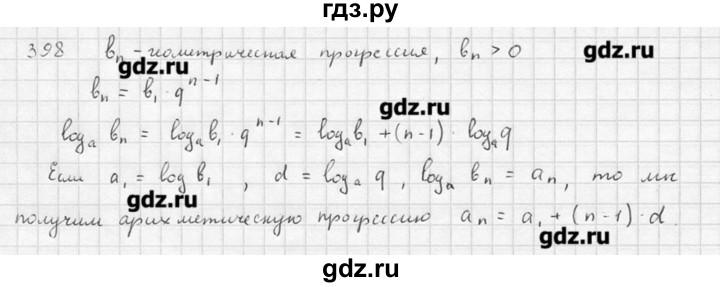 гдз.ру
398 bₙ - геометрическая прогрессия, bₙ > 0
gdz.ru gdz.ru
bₙ = b₁ · qⁿ⁻¹
gdz.ru
logₐ bₙ = logₐ b₁ · qⁿ⁻¹ = logₐ b₁ + (n-1) · logₐ q
Если a₁ = log b₁ , d = logₐ q , logₐ bₙ = aₙ, то мы
gdz.ru
получим арихметическую прогрессию aₙ = a₁ + (n-1) · d
gdz.ru
gdz.ru